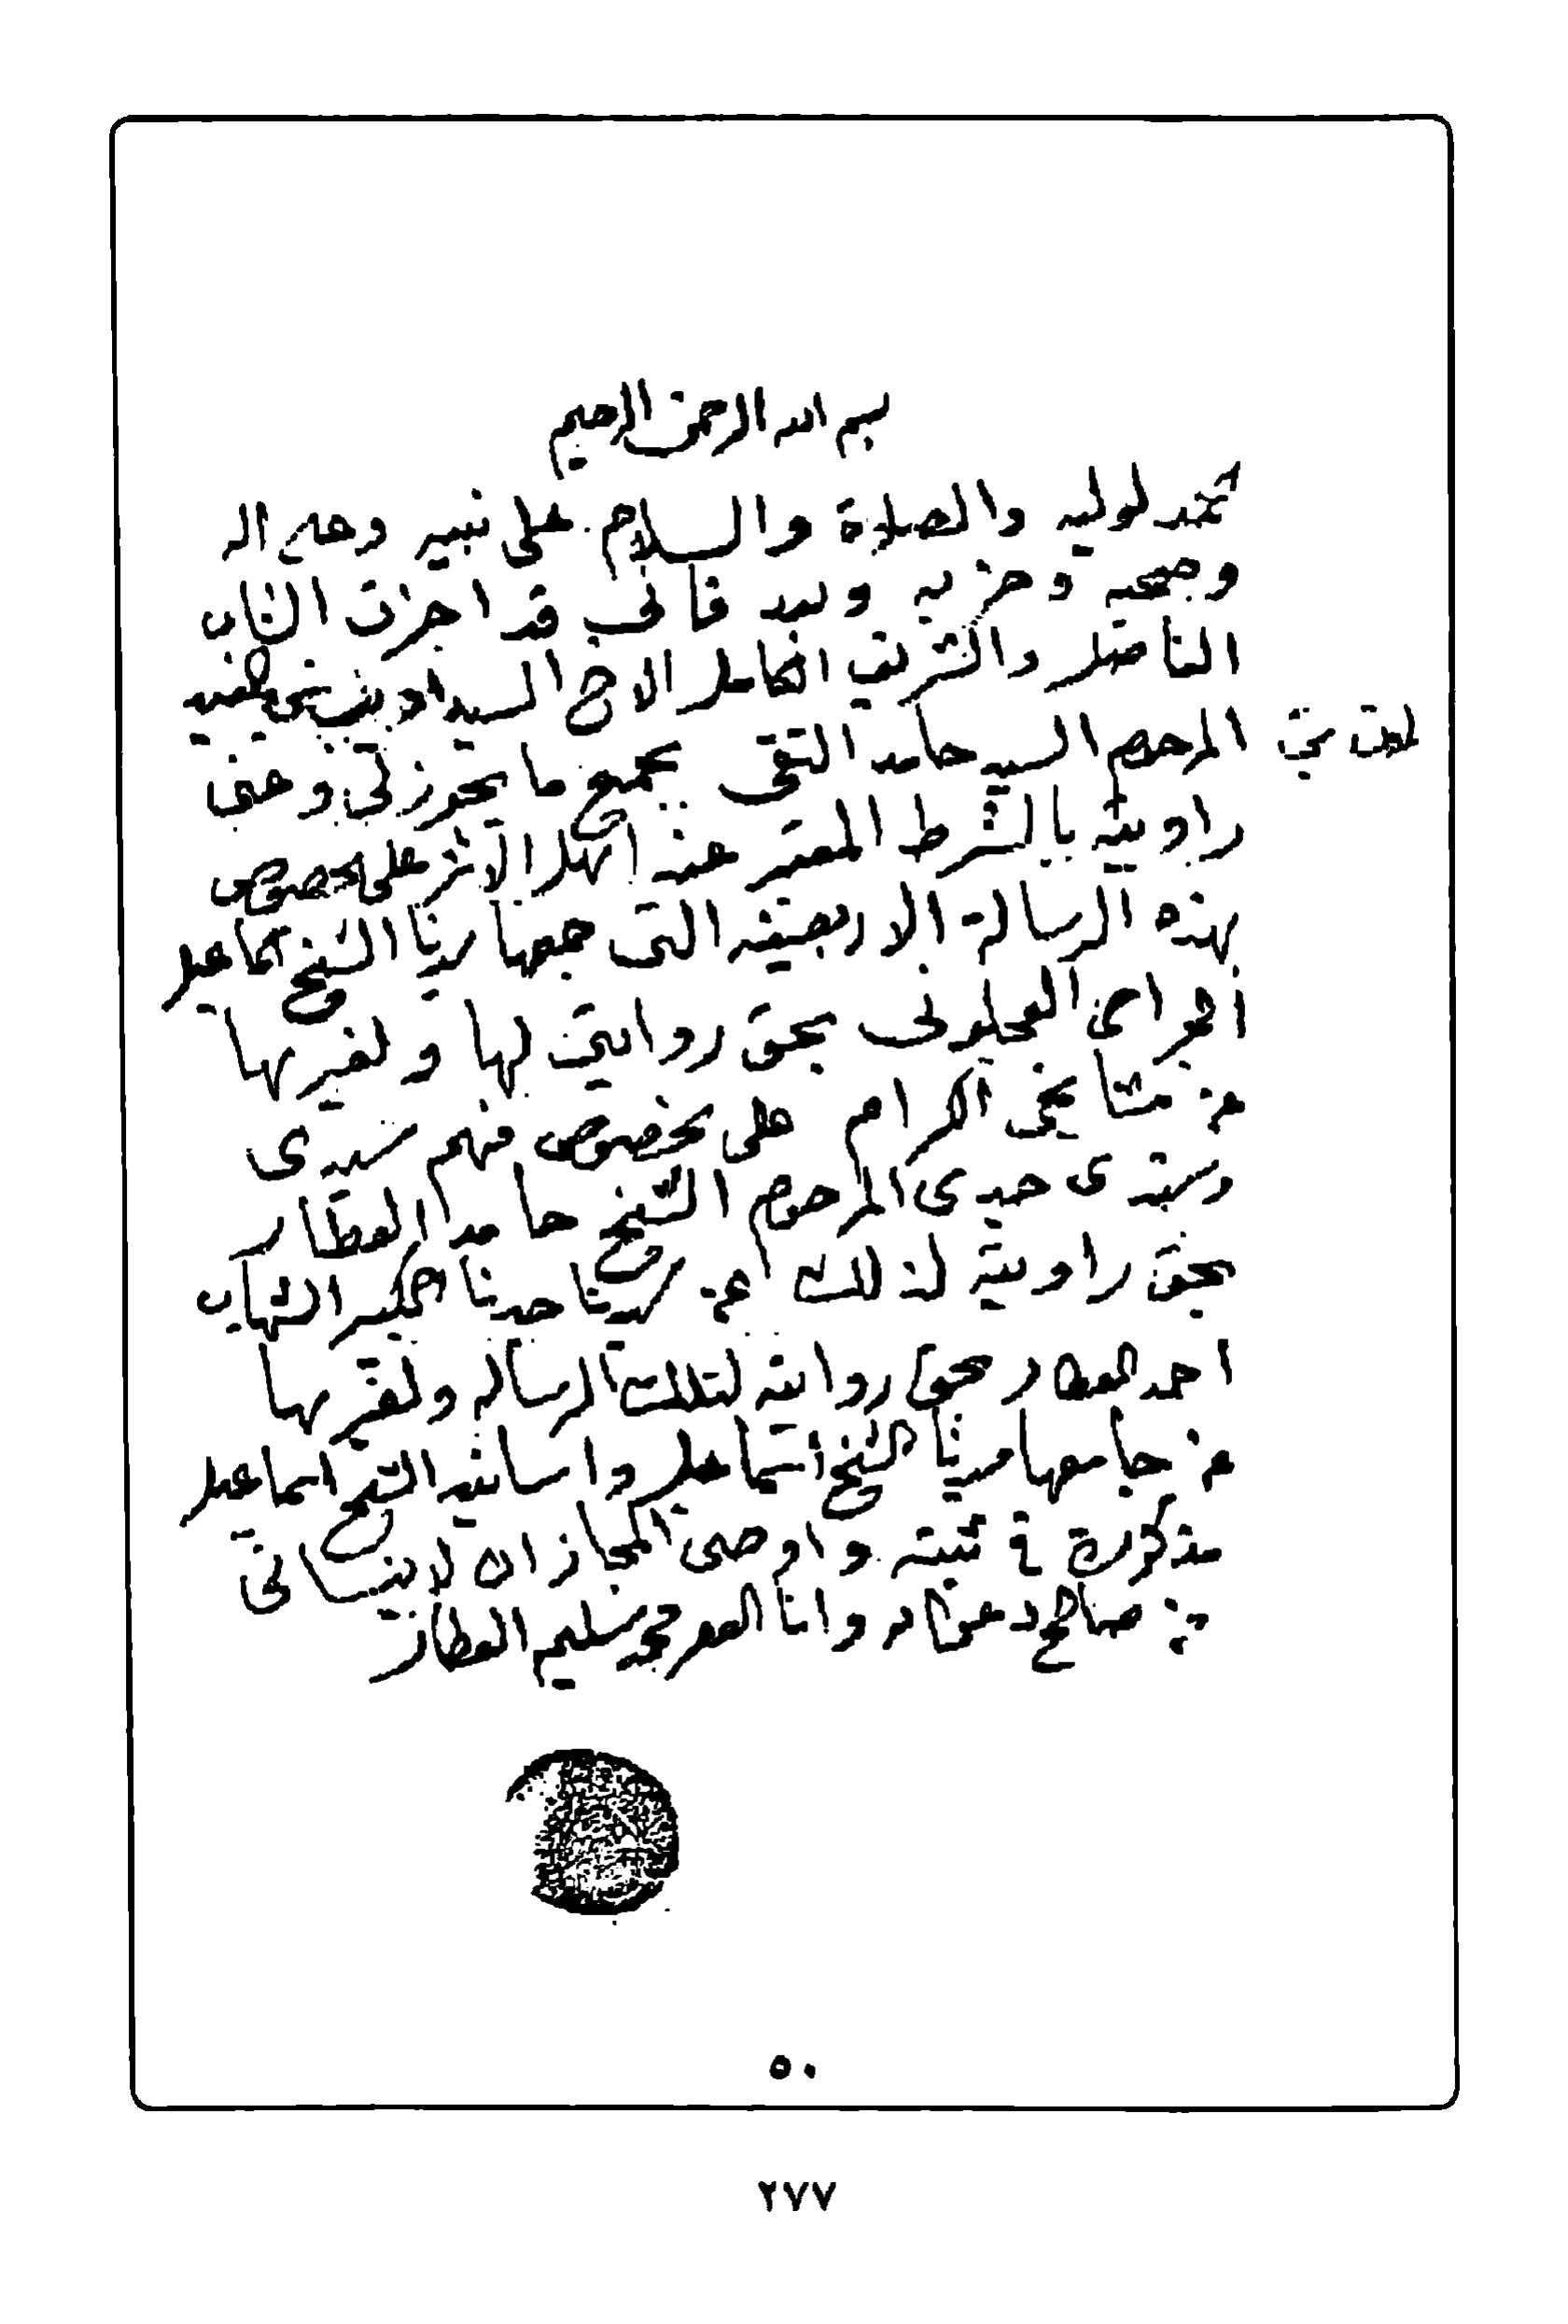 بسم الله الرحمن الرحيم
نحمد لوليه والصلاة والسلام على نبيه وعلى اله
وصحبه وحزبه وبعد فاني قد اجزت الشاب
الفاضل والشريف الكامل الاخ السيد اديب
المرحوم السيد حامد التقي بجميع ما يجوز لي وعني
راويته بالشرط المعتبر عند اهل الاثر على خصوص
هذه الرسالة الاربعينية التي جمعها سيدنا الشيخ اسماعيل
الجراحي العجلوني بحق روايتي لها ولغيرها
من مشايخي الكرام على خصوص منهم سيدي
وسندي جدي المرحوم الشيخ حامد العطار
بحق راويته لذلك عن سيدنا جدنا الشهاب
احمد العطار بحق روايته لتلك الرسالة ولغيرها
من جامعها سيدنا الشيخ اسماعيل واسانيد الشيخ اسماعيل
مذكورة في ثبته واوصي المجاز ان لا ينساني
من صالح دعواته وانا الفقير محمد سليم العطار
٥٠
٢٧٧